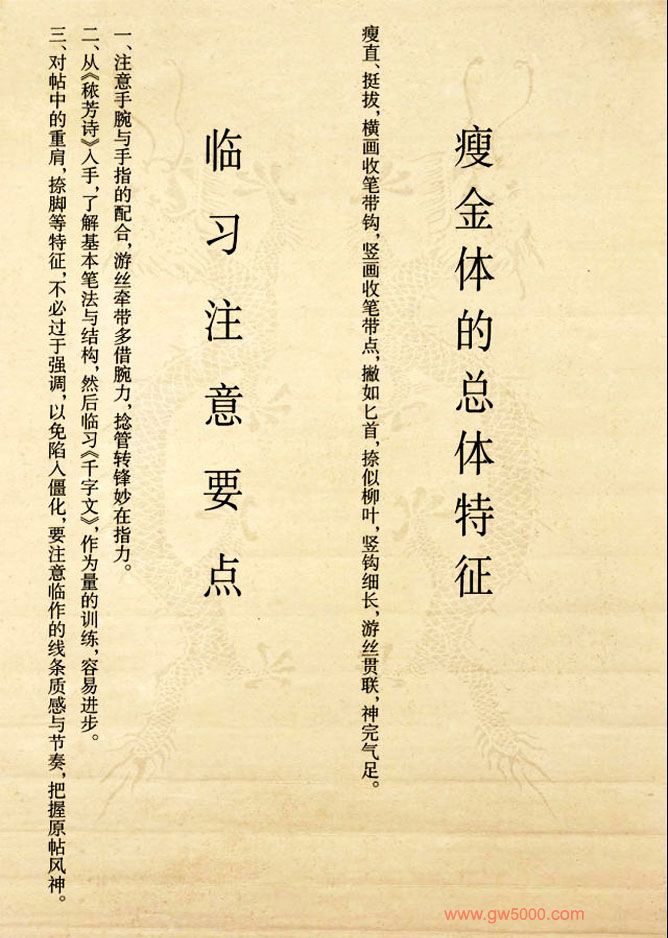 瘦金体的总体特征
瘦直、挺拔，横画收笔带钩，竖画收笔带点，撇如匕首，捺似柳叶，竖钩细长，游丝贯联，神完气足。
临习注意要点
一、注意手腕与手指的配合，游丝牵带多借腕力，捻管转锋妙在指力。
二、从《秾芳诗》入手，了解基本笔法与结构，然后临习《千字文》，作为量的训练，容易进步。
三、对帖中的重肩，捺脚等特征，不必过于强调，以免陷入僵化，要注意临作的线条质感与节奏，把握原帖风神。
www.gw5000.com